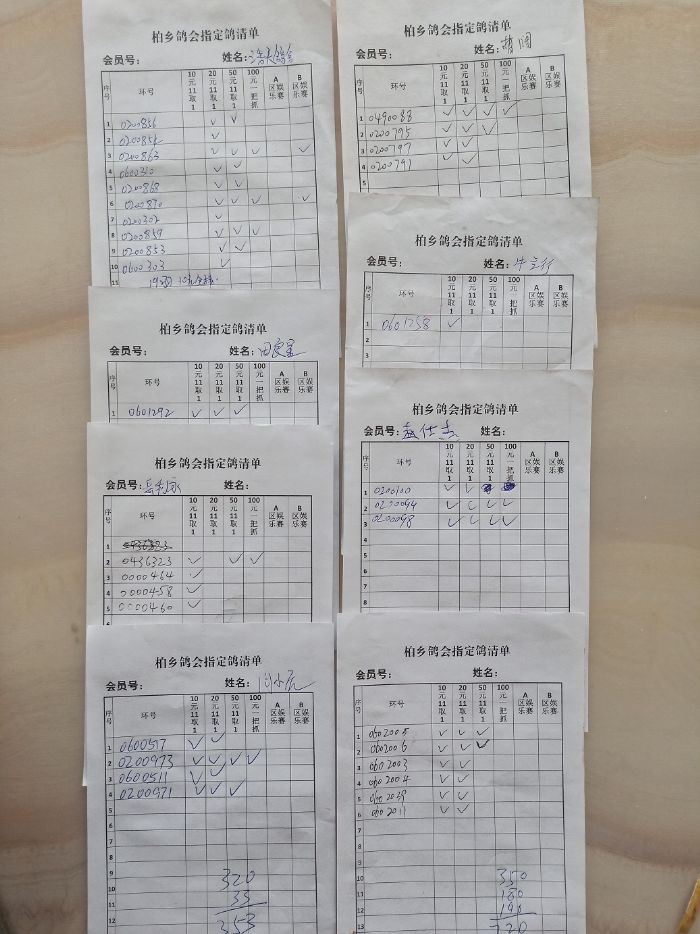 柏乡鸽会指定鸽清单
会员号： 姓名：
序号 环号 10元11取1 20元11取1 50元11取1 100元一把抓 A区娱乐赛 B区娱乐赛
1 0200856 ✓ ✓
2 ✓
3 0200863 ✓ ✓ ✓ ✓
4 0600310 ✓ ✓
5 0200868 ✓ ✓
6 0200870 ✓ ✓ ✓ ✓
7 0200302 ✓
8 0200857 ✓ ✓ ✓
9 0200853 ✓ ✓
10 0600303 ✓
11
柏乡鸽会指定鸽清单
会员号： 姓名：
序号 环号 10元11取1 20元11取1 50元11取1 100元一把抓 A区娱乐赛 B区娱乐赛
1 0601292 ✓ ✓ ✓
柏乡鸽会指定鸽清单
会员号： 姓名：
序号 环号 10元11取1 20元11取1 50元11取1 100元一把抓 A区娱乐赛 B区娱乐赛
1
2 0436323 ✓ ✓ ✓
3 0000464 ✓
4 0000458 ✓
5 0000460 ✓
柏乡鸽会指定鸽清单
会员号： 姓名：
序号 环号 10元11取1 20元11取1 50元11取1 100元一把抓 A区娱乐赛 B区娱乐赛
1 0600517 ✓ ✓
2 0200973 ✓ ✓ ✓ ✓
3 0600511 ✓ ✓
4 0200971 ✓ ✓ ✓
5
6
7
8
9
10 320
11 33
12 353
柏乡鸽会指定鸽清单
会员号： 姓名：
序号 环号 10元11取1 20元11取1 50元11取1 100元一把抓 A区娱乐赛 B区娱乐赛
1 0490088 ✓ ✓ ✓ ✓
2 0200795 ✓ ✓ ✓
3 0200797 ✓ ✓
4 0200791 ✓ ✓
5
柏乡鸽会指定鸽清单
会员号： 姓名：牛立行
序号 环号 10元11取1 20元11取1 50元11取1 100元一把抓 A区娱乐赛 B区娱乐赛
1 0601258 ✓
2
3
柏乡鸽会指定鸽清单
会员号：孟仕杰 姓名：
序号 环号 10元11取1 20元11取1 50元11取1 100元一把抓 A区娱乐赛 B区娱乐赛
1 0200100 ✓ ✓
2 0200094 ✓ ✓ ✓ ✓
3 0200098 ✓ ✓ ✓ ✓
4
5
6
7
8
柏乡鸽会指定鸽清单
会员号： 姓名：
序号 环号 10元11取1 20元11取1 50元11取1 100元一把抓 A区娱乐赛 B区娱乐赛
1 0602005 ✓ ✓ ✓
2 0602006 ✓ ✓ ✓
3 0602003 ✓ ✓
4 0602004 ✓ ✓
5 0602039 ✓ ✓
6 0602011 ✓ ✓
7
8
9
10 350
11 180
12 190
13 720